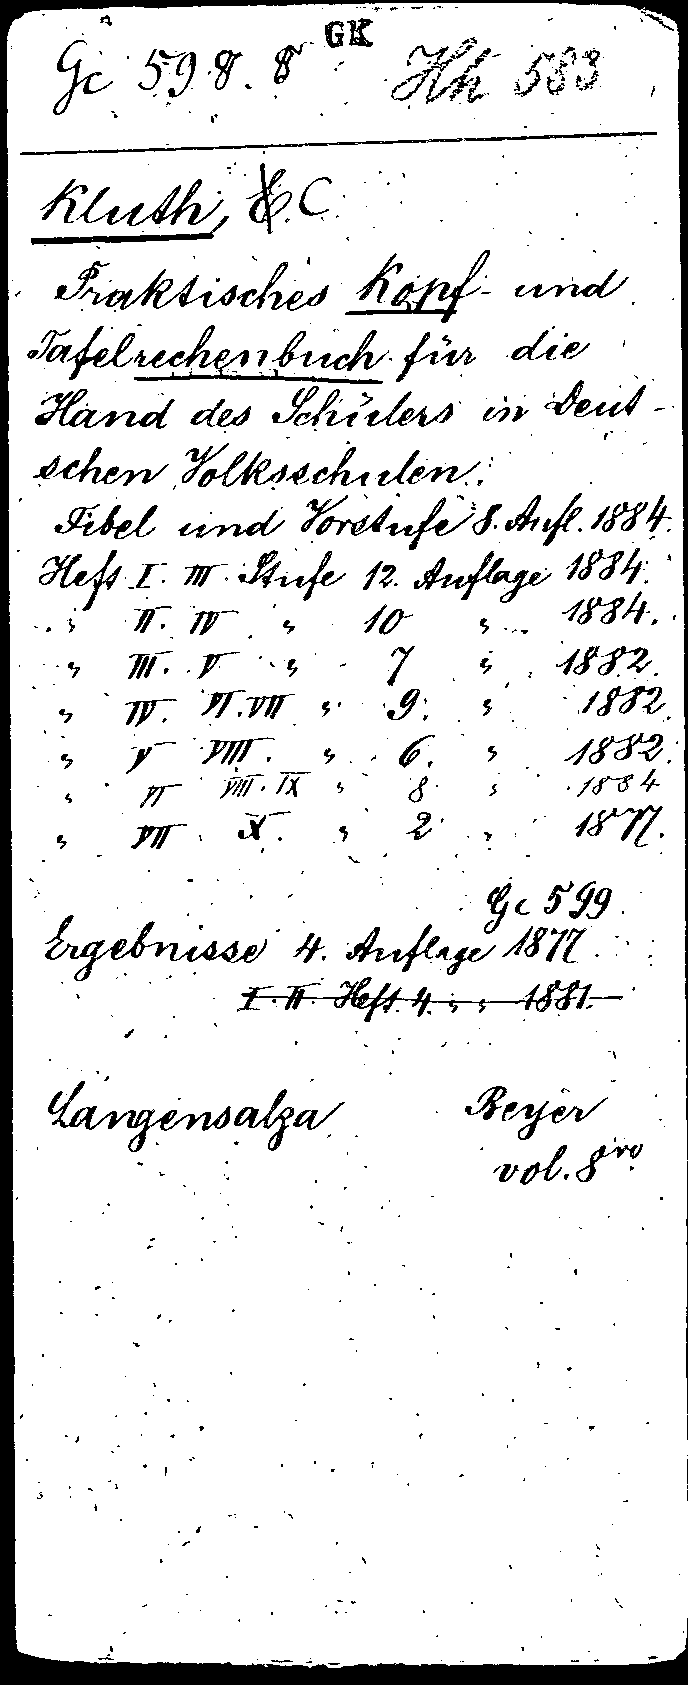 GK
Gc 598.8 Hh 583
Kluth, C.
Praktisches Kopf- und
Tafelrechenbuch für die
Hand des Schülers in Deut-
schen Volksschulen.
Fibel und Vorstufe 8. Aufl. 1884.
Heft I. III. Stufe 12. Auflage 1884.
" II. IV " 10 " 1884.
" III. V " 7 " 1882.
" IV. VI. VII " 9. " 1882.
" V VIII. " 6. " 1882.
" VI VIII. IX " 8 " 1884
" VII X. " 2 " 1877.
Gc 599
Ergebnisse 4. Auflage 1877.
I. II. Heft 4. " " 1881.
Langensalza Beyer
vol. 8vo